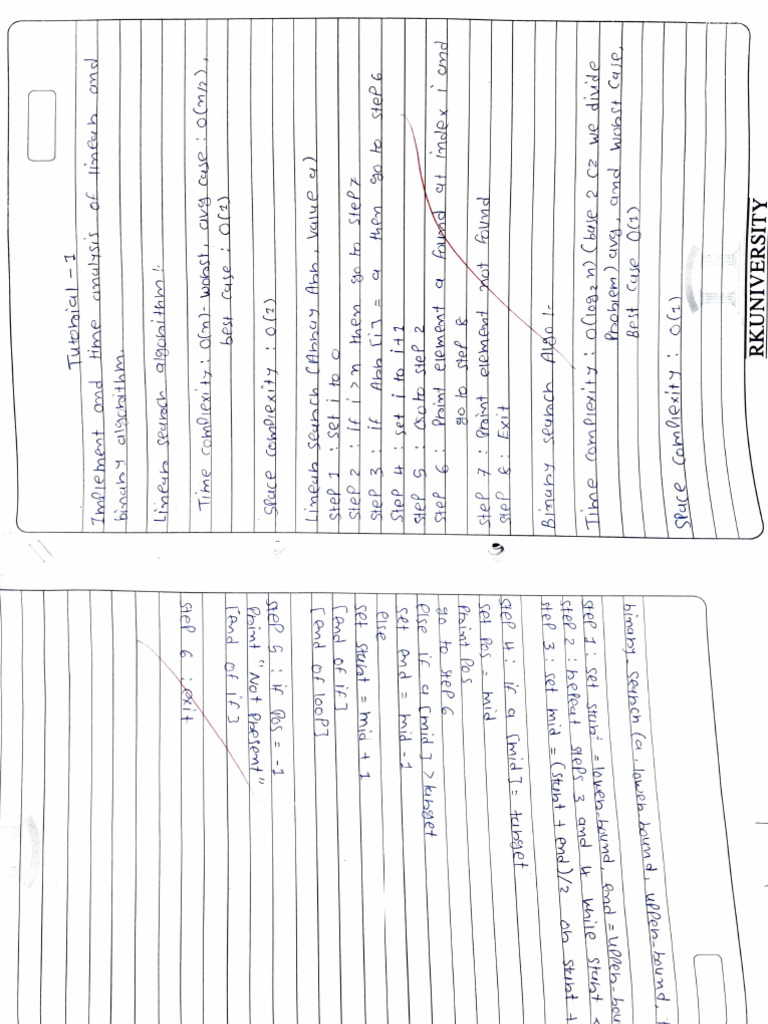 Tutorial - 1
Implement and time analysis of linear and
binary algorithm.
Linear search algorithm :
Time complexity : O(n) - worst, avg case : O(n/2),
best case : O(1)
Space complexity : O(1)
Linear search (Array Arr, Value a)
Step 1 : set i to 0
Step 2 : if i > n then go to step 7
Step 3 : if Arr [i] = a then go to step 6
Step 4 : set i to i+1
Step 5 : Go to step 2
Step 6 : Print element a found at index i and
go to step 8
Step 7 : Print element not found
Step 8 : Exit
Binary search Algo :-
Time complexity : O(log2 n) (base 2 cz we divide
Problem) avg, and worst case,
Best case O(1)
Space complexity : O(1)
RKUNIVERSITY
binary-search (a, lower-bound, upper-bound,
step 1 : set start = lower-bound, end = upper-bou
step 2 : repeat steps 3 and 4 while start <
step 3 : set mid = (start + end)/2 or start +
step 4 : if a [mid] = target
set pos = mid
Print pos
go to step 6
else if a [mid] > target
set end = mid - 1
else
set start = mid + 1
[end of if]
[end of loop]
step 5 : if pos = -1
Print "Not Present"
[end of if]
step 6 : exit